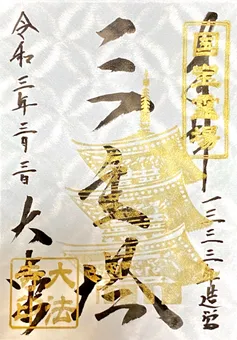 国宝霊場
一三三三年造営
三重塔
令和三年三月三日
大法寺
大法
寺印